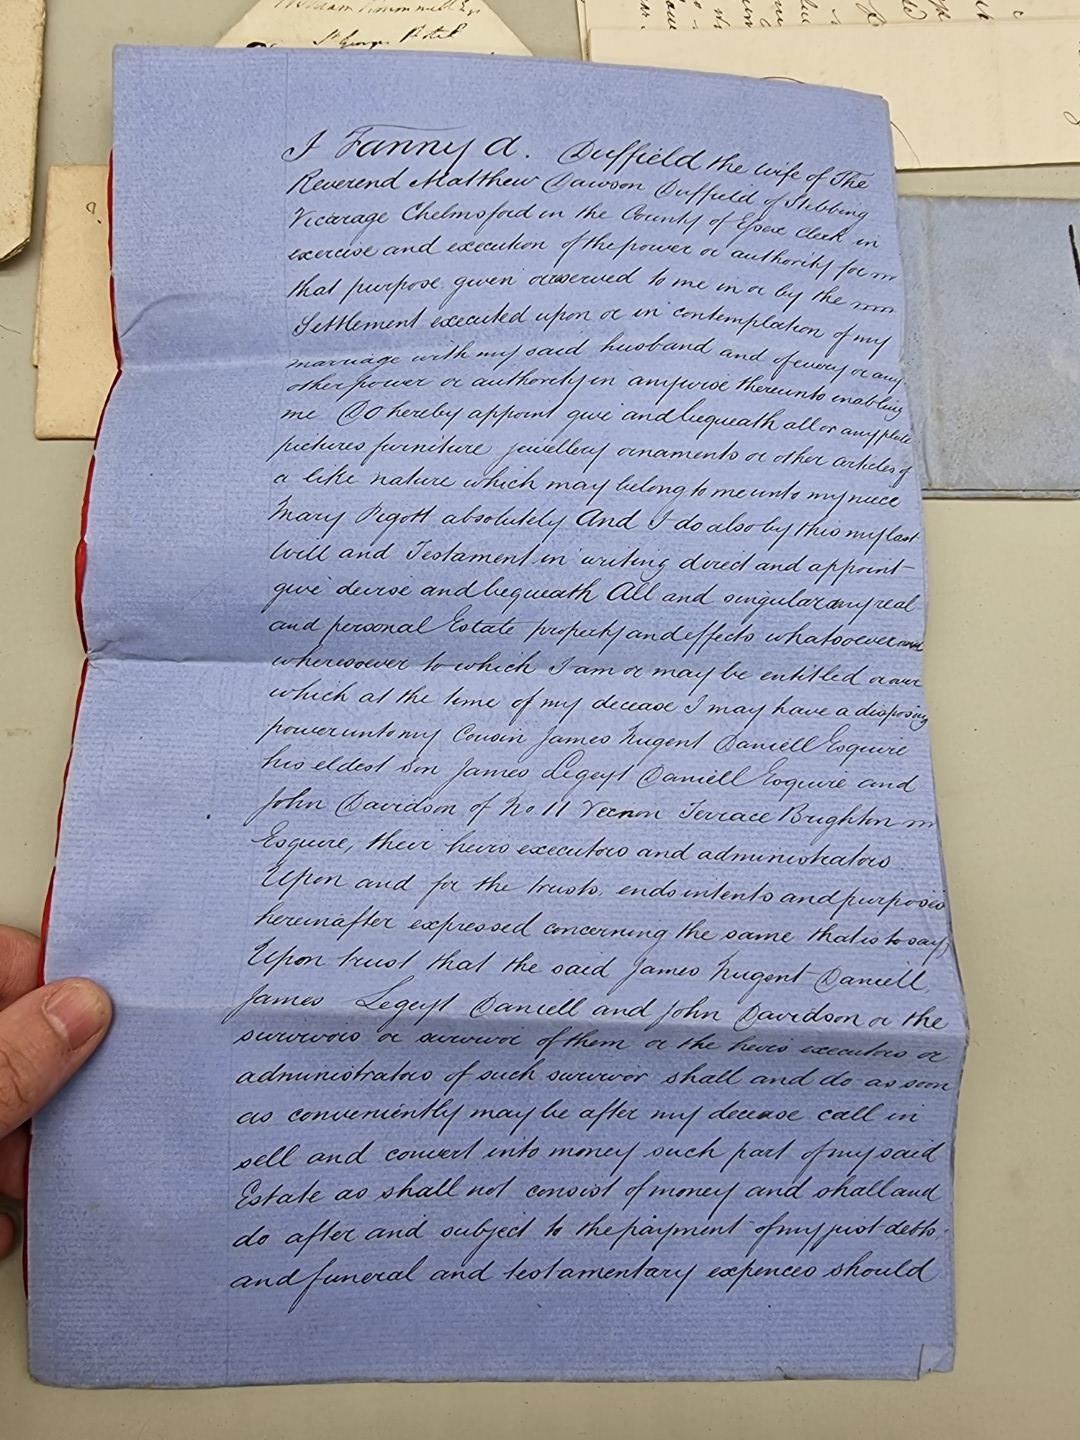 St Georges Hotel
I Fanny A. Duffield the wife of The
Reverend Matthew Dawson Duffield of Stebbing
Vicarage Chelmsford in the County of Essex Clerk in
exercise and execution of the power or authority for
that purpose given or reserved to me in or by the
Settlement executed upon or in contemplation of my
marriage with my said husband and of every or any
other power or authority in anywise thereunto enabling
me Do hereby appoint give and bequeath all or any plate
pictures furniture jewellery ornaments or other articles of
a like nature which may belong to me unto my niece
Mary Pigott absolutely And I do also by this my last
Will and Testament in writing direct and appoint
give devise and bequeath All and singular my real
and personal Estate property and effects whatsoever and
wheresoever to which I am or may be entitled or over
which at the time of my decease I may have a disposing
power unto my Cousin James Nugent Daniell Esquire
his eldest son James Legeyt Daniell Esquire and
John Davidson of No 11 Vernon Terrace Brighton
Esquire, their heirs executors and administrators
Upon and for the trusts, ends intents and purposes
hereinafter expressed concerning the same that is to say
Upon trust that the said James Nugent Daniell
James Legeyt Daniell and John Davidson or the
survivors or survivor of them or the heirs executors or
administrators of such survivor shall and do as soon
as conveniently may be after my decease call in
sell and convert into money such part of my said
Estate as shall not consist of money and shall and
do after and subject to the payment of my just debts
and funeral and testamentary expences should